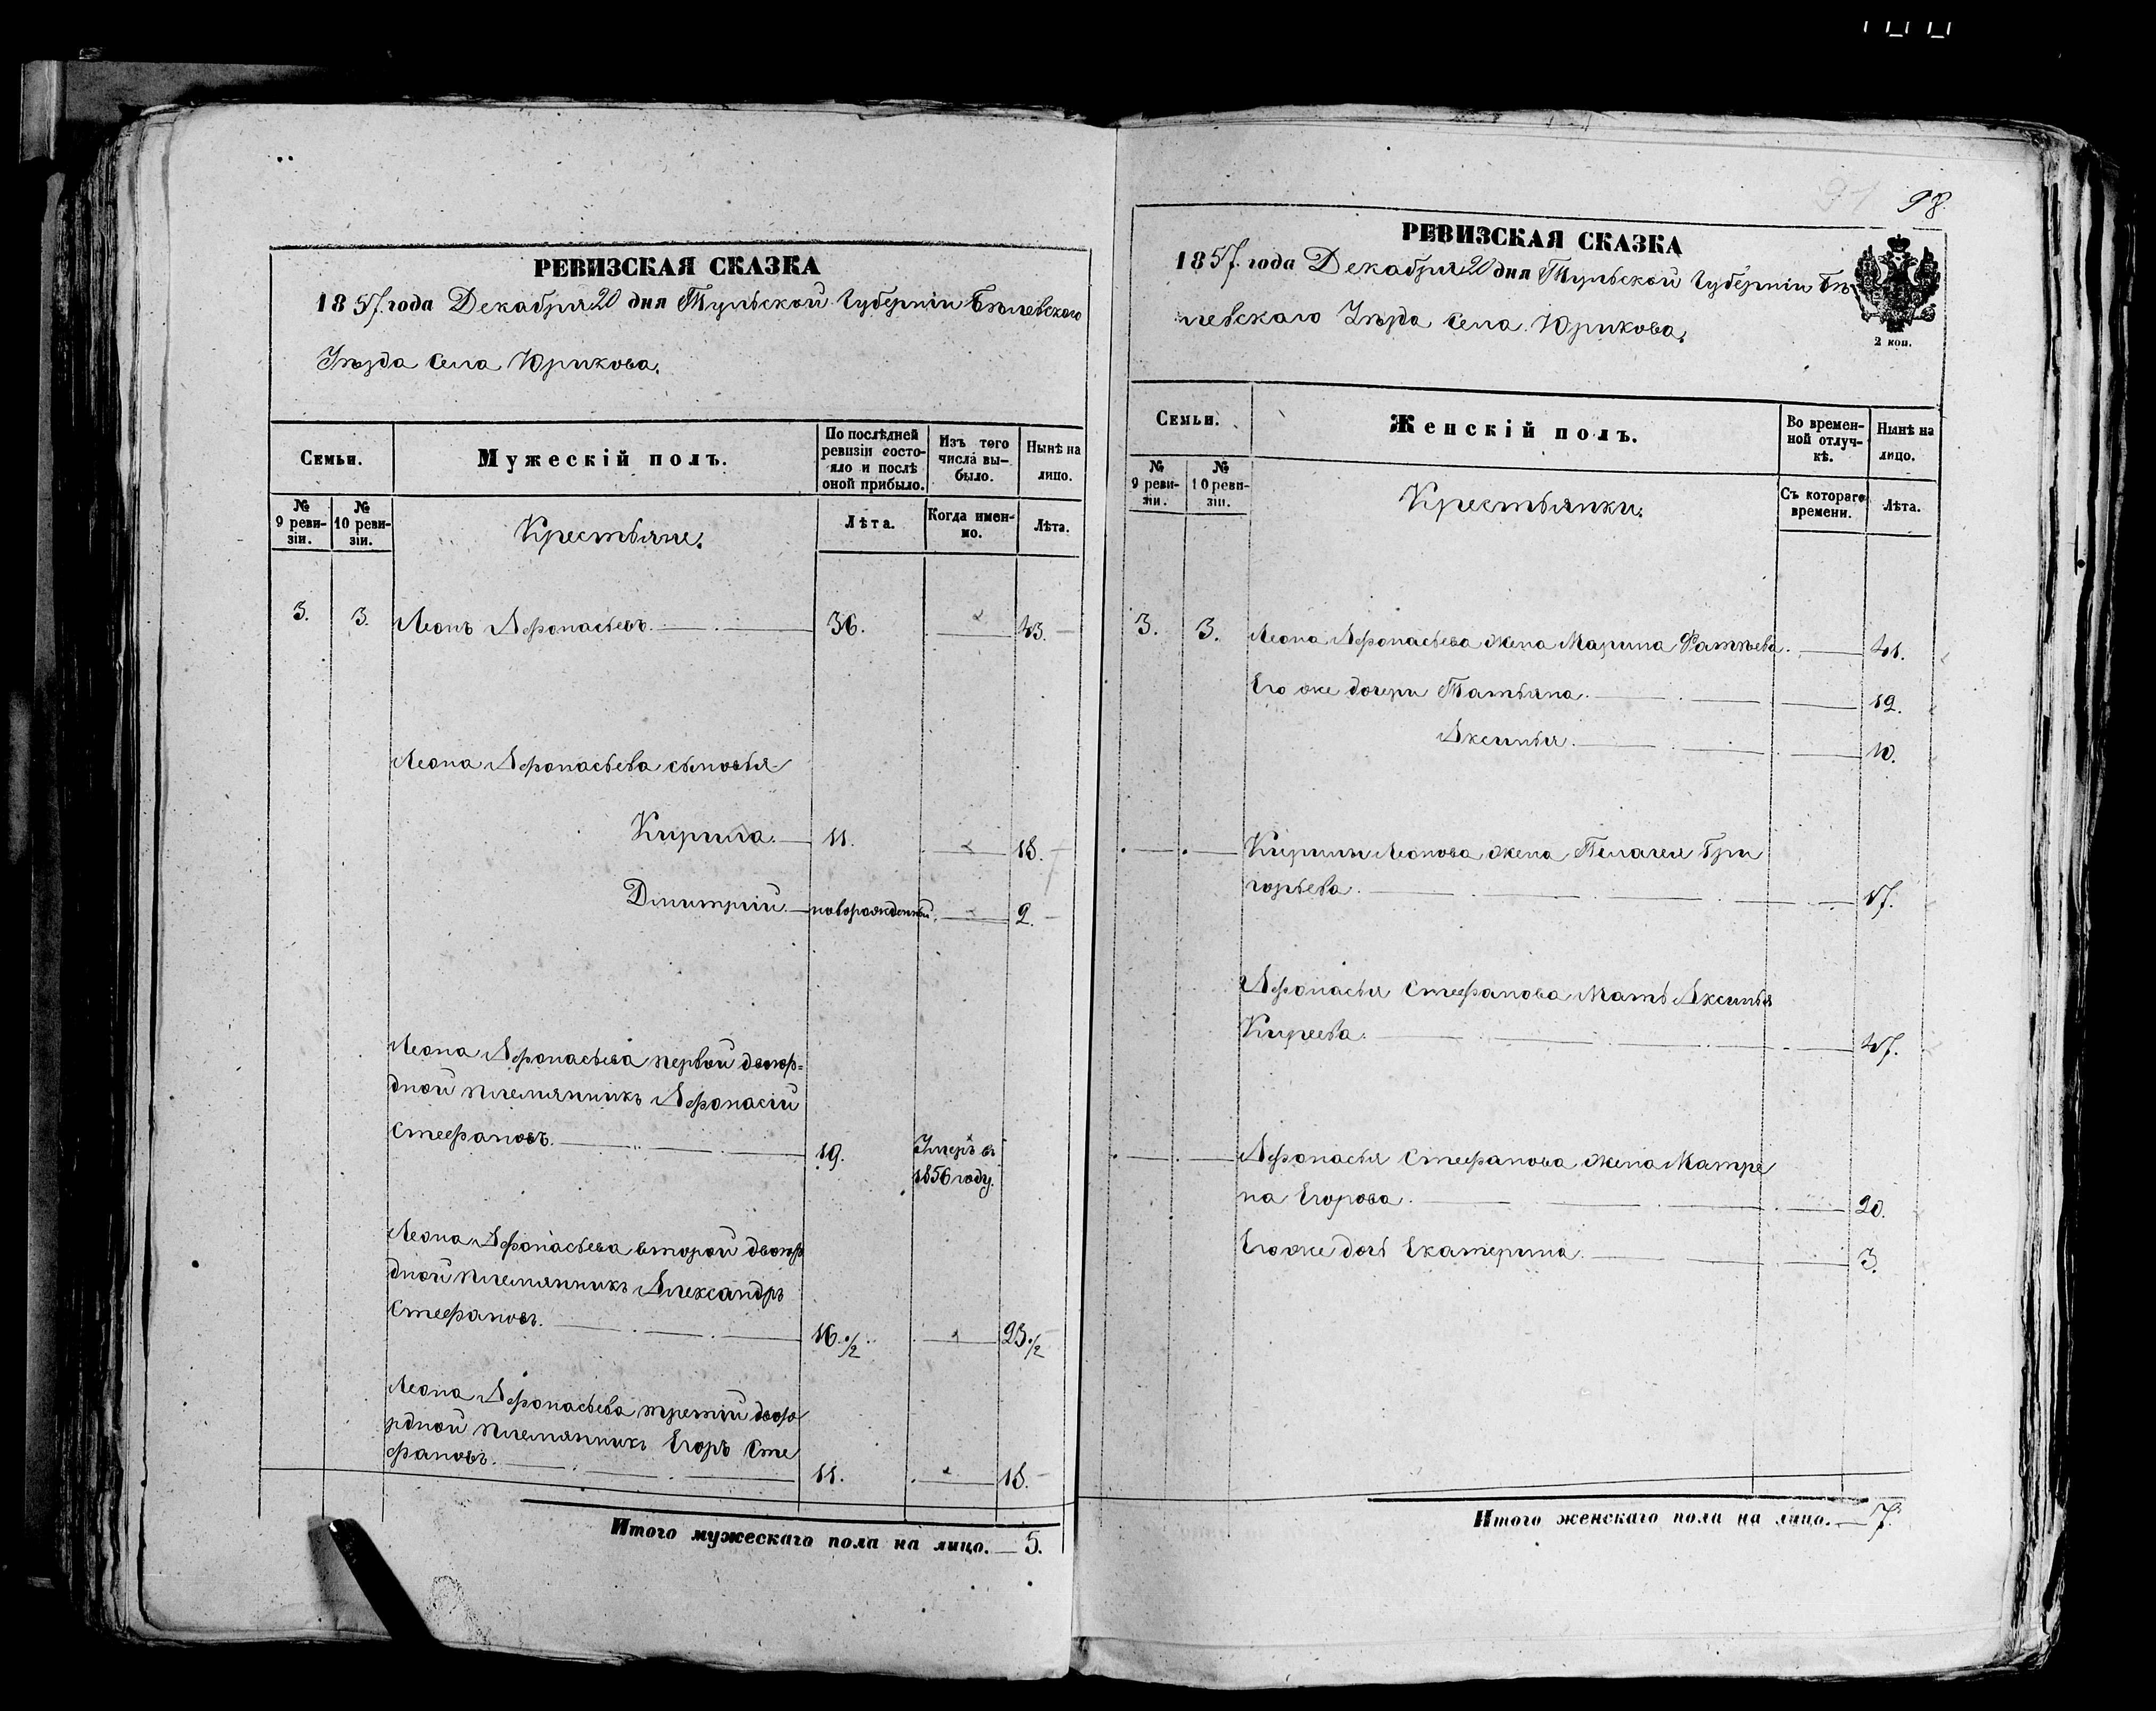 РЕВИЗСКАЯ СКАЗКА
1857. года Декабря 20 дня Тульской Губерніи Бѣлевскаго
Уѣзда Села Юрикова.
Семьи.
Мужескій полъ.
По послѣдней
ревизіи состо-
яло и послѣ
оной прибыло.
Изъ того
числа вы-
было.
Нынѣ на
лицо.
№
9 реви-
зіи.
№
10 реви-
зіи.
Крестьяне.
Лѣта.
Когда имен-
но.
Лѣта.
3. 3. Леонъ Афонасьевъ. 36. 43.
Леона Афонасьева сыновья
Кирила. 11. 18.
Дмитрій. новорожденный. 2.
Леона Афонасьева первой двоюр=
дной племянникъ Афонасій
Стефановъ. 19. Умеръ въ
1856 году.
Леона Афонасьева второй двоюр
дной племянникъ Александръ
Стефановъ. 16.1/2 23.1/2
Леона Афонасьева третій двою
рдной племянникъ Егоръ Сте
фановъ. 11. 18.
Итого мужескаго пола на лицо. 5.
98.
РЕВИЗСКАЯ СКАЗКА
1857. года Декабря 20 дня Тульской Губерніи Бѣ
левскаго Уѣзда Села Юрикова.
2 коп.
Семьи.
Женскій полъ.
Во времен-
ной отлуч-
кѣ.
Нынѣ на
лицо.
№
9 реви-
зіи.
№
10 реви-
зіи.
Крестьянки.
Съ котораго
времени.
Лѣта.
3. 3. Леона Афонасьева жена Марина Фатѣева. 41.
Его же дочери Татьяна. 12.
Аксинья. 10.
Кирилы Леонова жена Пелагея Гри
горьева. 17.
Афонасья Стефанова Мать Аксинья
Киреева. 47.
Афонасья Стефанова жена Матре
на Егорова. 20.
Его же дочь Екатерина. 3.
Итого женскаго пола на лицо. 7.